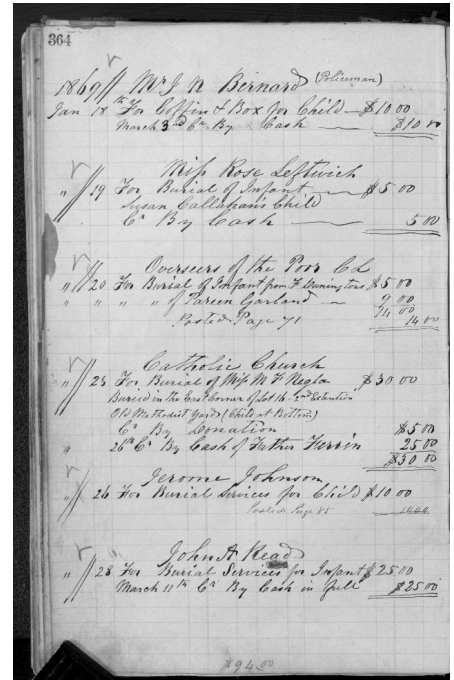 364
1869 Mr J N Bernard (Policeman)
Jan 18th For Coffin & Box for Child $10 00
March 3rd Cr By Cash $10 00
Miss Rose Leftwich
" 19 For Burial of Infant $5 00
Susan Callahan's Child
Cr By Cash 5 00
Overseers of the Poor
" 20 For Burial of Infant from F $5 00
" " " " of Garland 9 00
14 00
Posted Page 71 14 00
Catholic Church
" 23 For Burial of Miss M F $30 00
Buried in the East Corner of Lot 16 - 2nd
Old Methodist Yard (Child at Bottom)
Cr By Donation $5 00
" 26th Cr By Cash of Father 25 00
$30 00
Jerome Johnson
" 26 For Burial Services for Child $10 00
Posted Page 88
John A Read
" 28 For Burial Services for Infant $25 00
March 11th Cr By Cash in full $25 00
$94 00